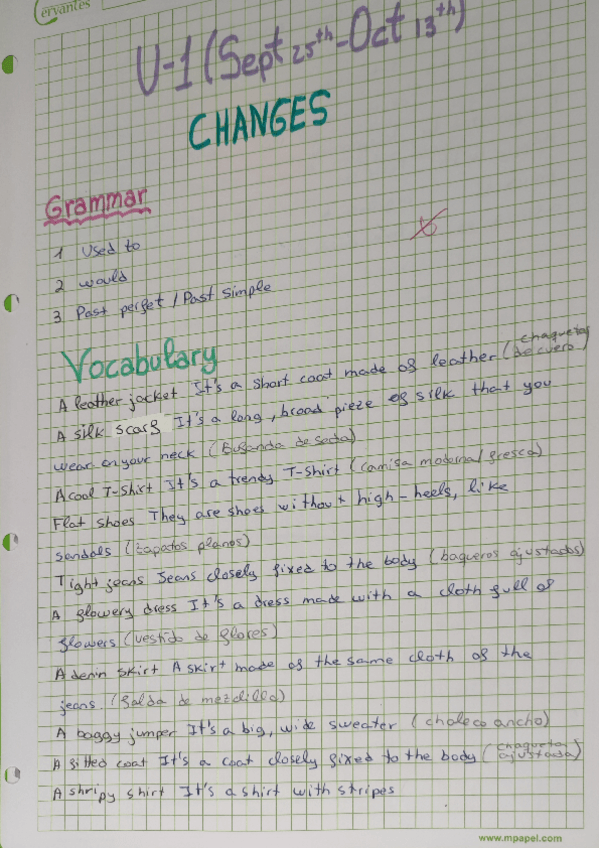 Cervantes
U-1 (Sept 25th-Oct 13th)
CHANGES
Grammar
1 Used to
2 would
3 Past perfet / Past simple
Vocabulary
A leather jacket It's a short coat made of leather (chaquetas de cuero)
A silk scarf It's a long, broad pieze of silk that you
wear on your neck (Bufanda de seda)
A cool T-shirt It's a trendy T-shirt (camisa moderna/fresca)
Flat shoes They are shoes without high-heels, like
sandals (zapatos planos)
Tight jeans Jeans closely fixed to the body (baqueros ajustados)
A flowery dress It's a dress made with a cloth full of
flowers (vestido de flores)
A denin skirt A skirt made of the same cloth of the
jeans. (falda de mezclilla)
A baggy jumper It's a big, wide sweater (chaleco ancho)
A fitted coat It's a coat closely fixed to the body (chaqueta ajustada)
A shripy shirt It's a shirt with stripes
www.mpapel.com